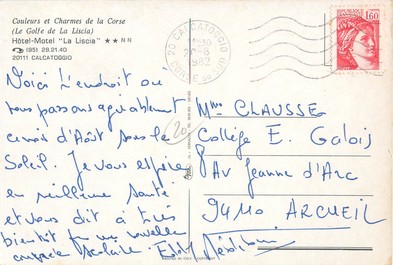 Couleurs et Charmes de la Corse
(Le Golfe de La Liscia)
Hôtel-Motel "La Liscia" ★★ NN
(95) 28.21.40
20111 CALCATOGGIO
20 CALCATOGGIO
1982
CORSE DU SUD
1,60
Voici l'endroit où
nous passons agréablement
ce mois d'Août sous le
Soleil. Je vous espère
en meilleure santé
et vous dit à très
bientôt pour une nouvelle
année scolaire.
20
Mme CLAUSSE
Collège E. Galois
Av Jeanne d'Arc
94110 ARCUEIL